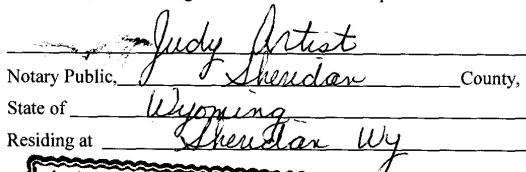 Judy Artist
Notary Public, Sheridan County,
State of Wyoming
Residing at Sheridan Wy